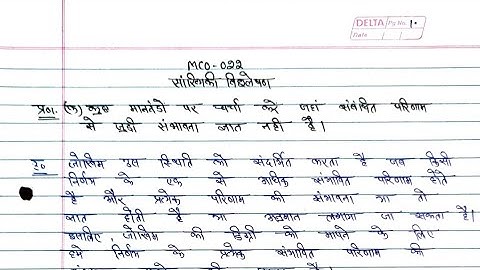 DELTA Pg No. 1.
Date / /
MCO-022
सांख्यिकी विश्लेषण
प्रश्न. (क) कुछ मानदंडों पर चर्चा करे जहां संबंधित परिणाम
से जुड़ी संभावना ज्ञात नहीं है।
उ० जोखिम उस स्थिति को संदर्भित करता है जब किसी
निर्णय के एक से अधिक संभावित परिणाम होते
है और प्रत्येक परिणाम की संभावना या तो
ज्ञात होती है या अनुमान लगाया जा सकता है।
इसलिए, जोखिम की डिग्री को मापने के लिए
हमे निर्णय के प्रत्येक संभावित परिणाम की